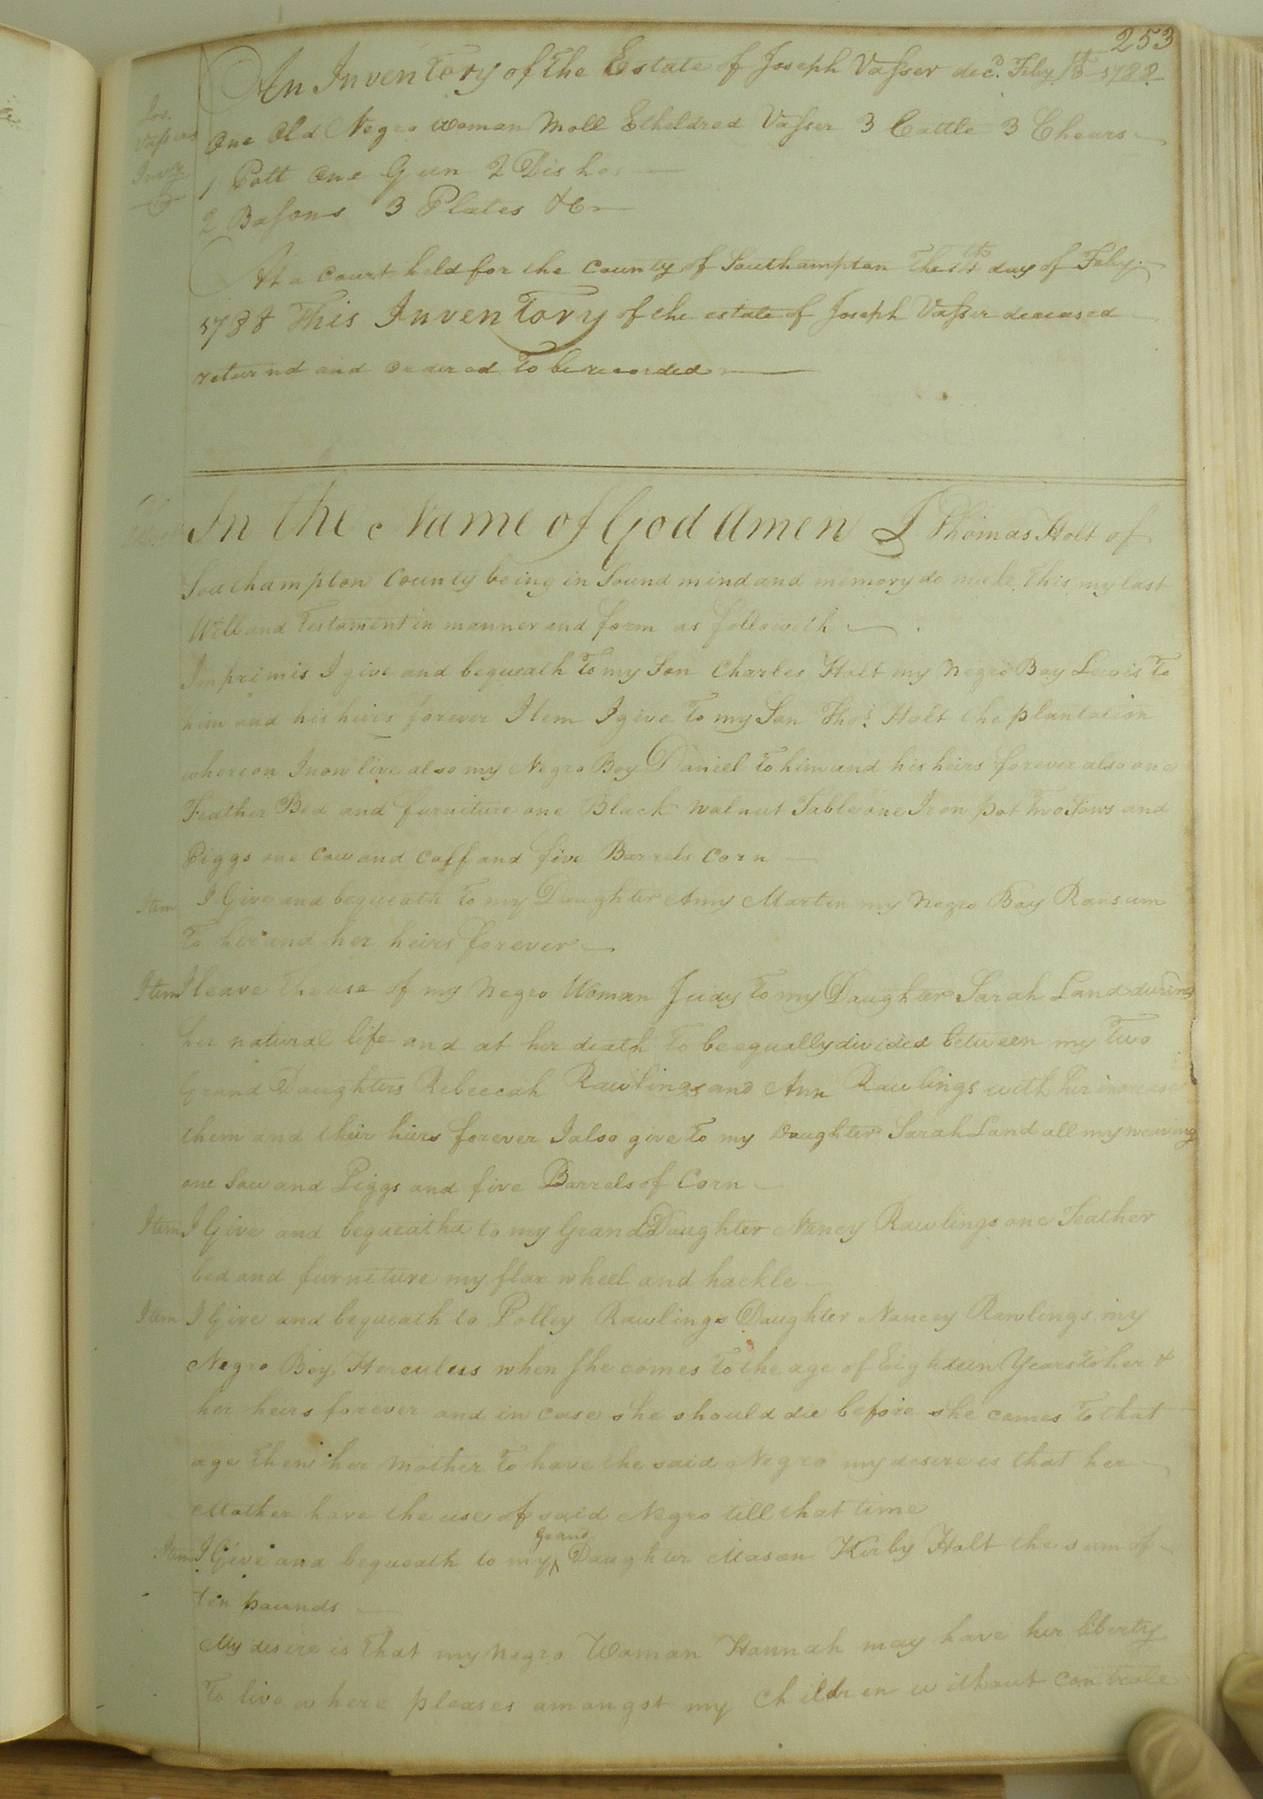 253
An Inventory of the Estate of Joseph Vasser decd. Feby 1788
Jos.
Vassers
Invy
One Old Negro Woman Moll Etheldred Vasser 3 Cattle 3 Chears
1 Pott One Gun 2 Dishes
2 Basons 3 Plates &c
At a Court held for the County of Southampton the day of Feby.
1788 This Inventory of the estate of Joseph Vasser deceased
returnd and ordered To be recorded
In the Name of God Amen I Thomas Holt of
Southampton County being in Sound mind and memory do make this my last
Will and Testament in manner and form as followeth
Imprimis I give and bequeath To my Son Charles Holt my Negro Boy Lewis To
him and his heirs forever Item I give To my Son Thos. Holt the plantation
whereon I now live also my Negro Boy Daniel To him and his heirs forever also one
Feather Bed and furniture one Black walnut Table one Iron pot Two Sows and
Piggs one cow and calf and five Barrels Corn
Item I Give and bequeath To my Daughter Amy Martin my Negro Boy Ransum
To her and her heirs forever
Item I leave the use of my Negro Woman Judy To my Daughter Sarah Land during
her natural life and at her death To be equally divided between my Two
Grand Daughters Rebeecah Rawlings and Ann Rawlings with her increase
them and their hiers forever I also give To my Daughter Sarah Land all my weaving
one Sow and Piggs and five Barrels of Corn
Item I Give and bequeathd to my Grand Daughter Nancy Rawlings one Feather
bed and furniture my flax wheel and hackle
Item I Give and bequeath to Polley Rawlings Daughter Nancey Rawlings my
Negro Boy Herculus when she comes To the age of Eighteen Years To her &
her heirs forever and in case she should die before she comes To that
age then her mother To have the said Negro my desire is that her
Mother have the use of said Negro till that time
Item I Give and bequeath to my Grand Daughter Mason Kirby Holt the sum of
ten pounds
My desire is That my Negro Woman Hannah may have her liberty
To live where pleases amongst my Children without controle